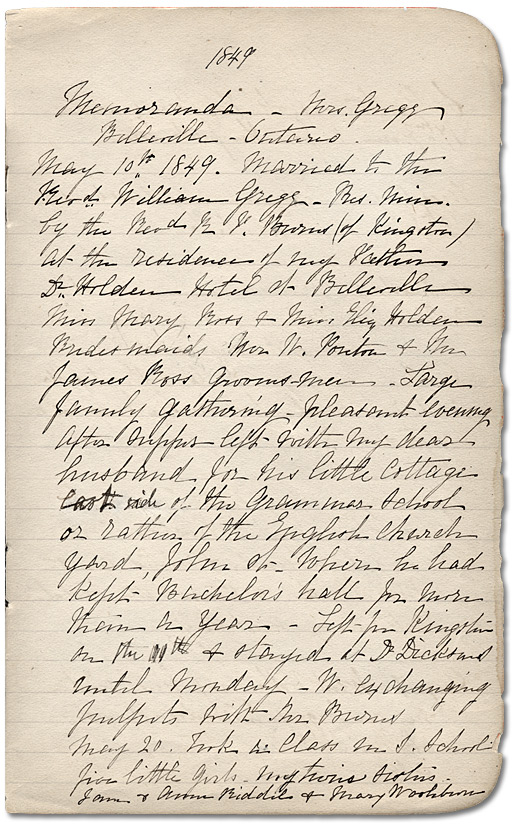 1849
Memoranda - Mrs. Gregg
Belleville - Ontario.
May 10th 1849. Married to the
Revd. William Gregg - Pres. Min.
by the Revd R. F. Burns (of Kingston)
at the residence of my Father
Dr. Holden Hotel St Belleville
Miss Mary Ross & Miss Eliz Holden
Bridesmaids Wm W. Ponton & Mr
James Ross groomsmen - Large
family gathering - pleasant evening
After supper left with my dear
husband for his little cottage
east side of the Grammar School
or rather of the English Church
yard, John St - Where he had
kept Bachelor's hall for more
than a year - Left for Kingston
on the 11th & stayed at Dr Dicksons
until Monday - W. exchanging
pulpits with Mr Burns
May 20. Took a Class in S. School
five little girls - my twin sisters -
Jane & Annie Riddell & Mary Washburn